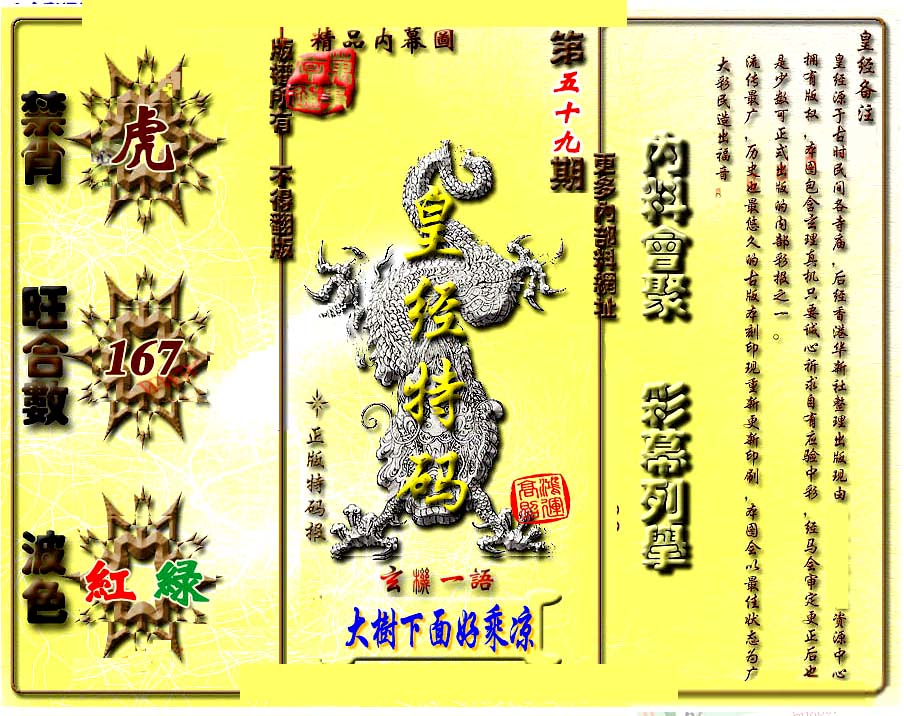 禁肖
虎
旺合數
167
波色
紅 綠
精品内幕圖
版權所有 不得翻版
第五十九期
更多內部料網址
皇经特码
正版特码报
鴻運高照
玄機一語
大樹下面好乘凉
內料會聚 彩幕列舉
皇经备注
皇经源于古时民间各寺庙,后经香港华新社整理出版现由 资源中心
拥有版权,本图包含玄理真机只要诚心祈求自有应验中彩,经马会审定更正后也
是少数可正式出版的内部彩报之一。
流传最广,历史也最悠久的古版本刻印现重新更新印刷,本图会以最佳状态为广
大彩民造出福音。